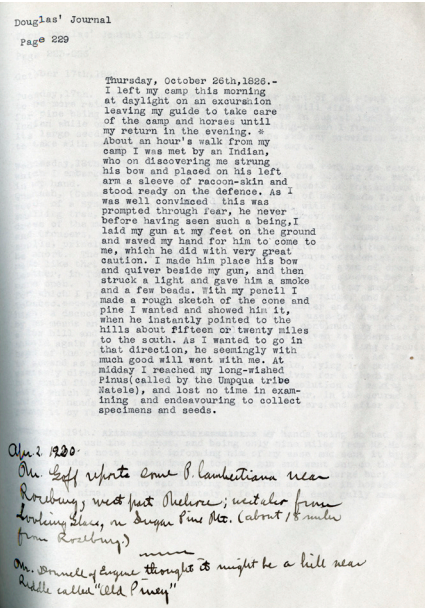 Douglas' Journal
Page 229
Thursday, October 26th,1826.-
I left my camp this morning
at daylight on an excursion
leaving my guide to take care
of the camp and horses until
my return in the evening. *
About an hour's walk from my
camp I was met by an Indian,
who on discovering me strung
his bow and placed on his left
arm a sleeve of racoon-skin and
stood ready on the defence. As I
was well convinced this was
prompted through fear, he never
before having seen such a being,I
laid my gun at my feet on the ground
and waved my hand for him to come to
me, which he did with very great
caution. I made him place his bow
and quiver beside my gun, and then
struck a light and gave him a smoke
and a few beads. With my pencil I
made a rough sketch of the cone and
pine I wanted and showed him it,
when he instantly pointed to the
hills about fifteen or twenty miles
to the south. As I wanted to go in
that direction, he seemingly with
much good will went with me. At
midday I reached my long-wished
Pinus(called by the Umpqua tribe
Natele), and lost no time in exam-
ining and endeavouring to collect
specimens and seeds.
Apr 2. 1920
Mr. Goff reports some P. lambertiana near
Roseburg, west part Melrose; from
Looking Glass, on Sugar Pine Mt. (about 18 miles
from Roseburg.)
Mr. Donnell of Eugene thought it might be a hill near
Riddle called "Old Piney"